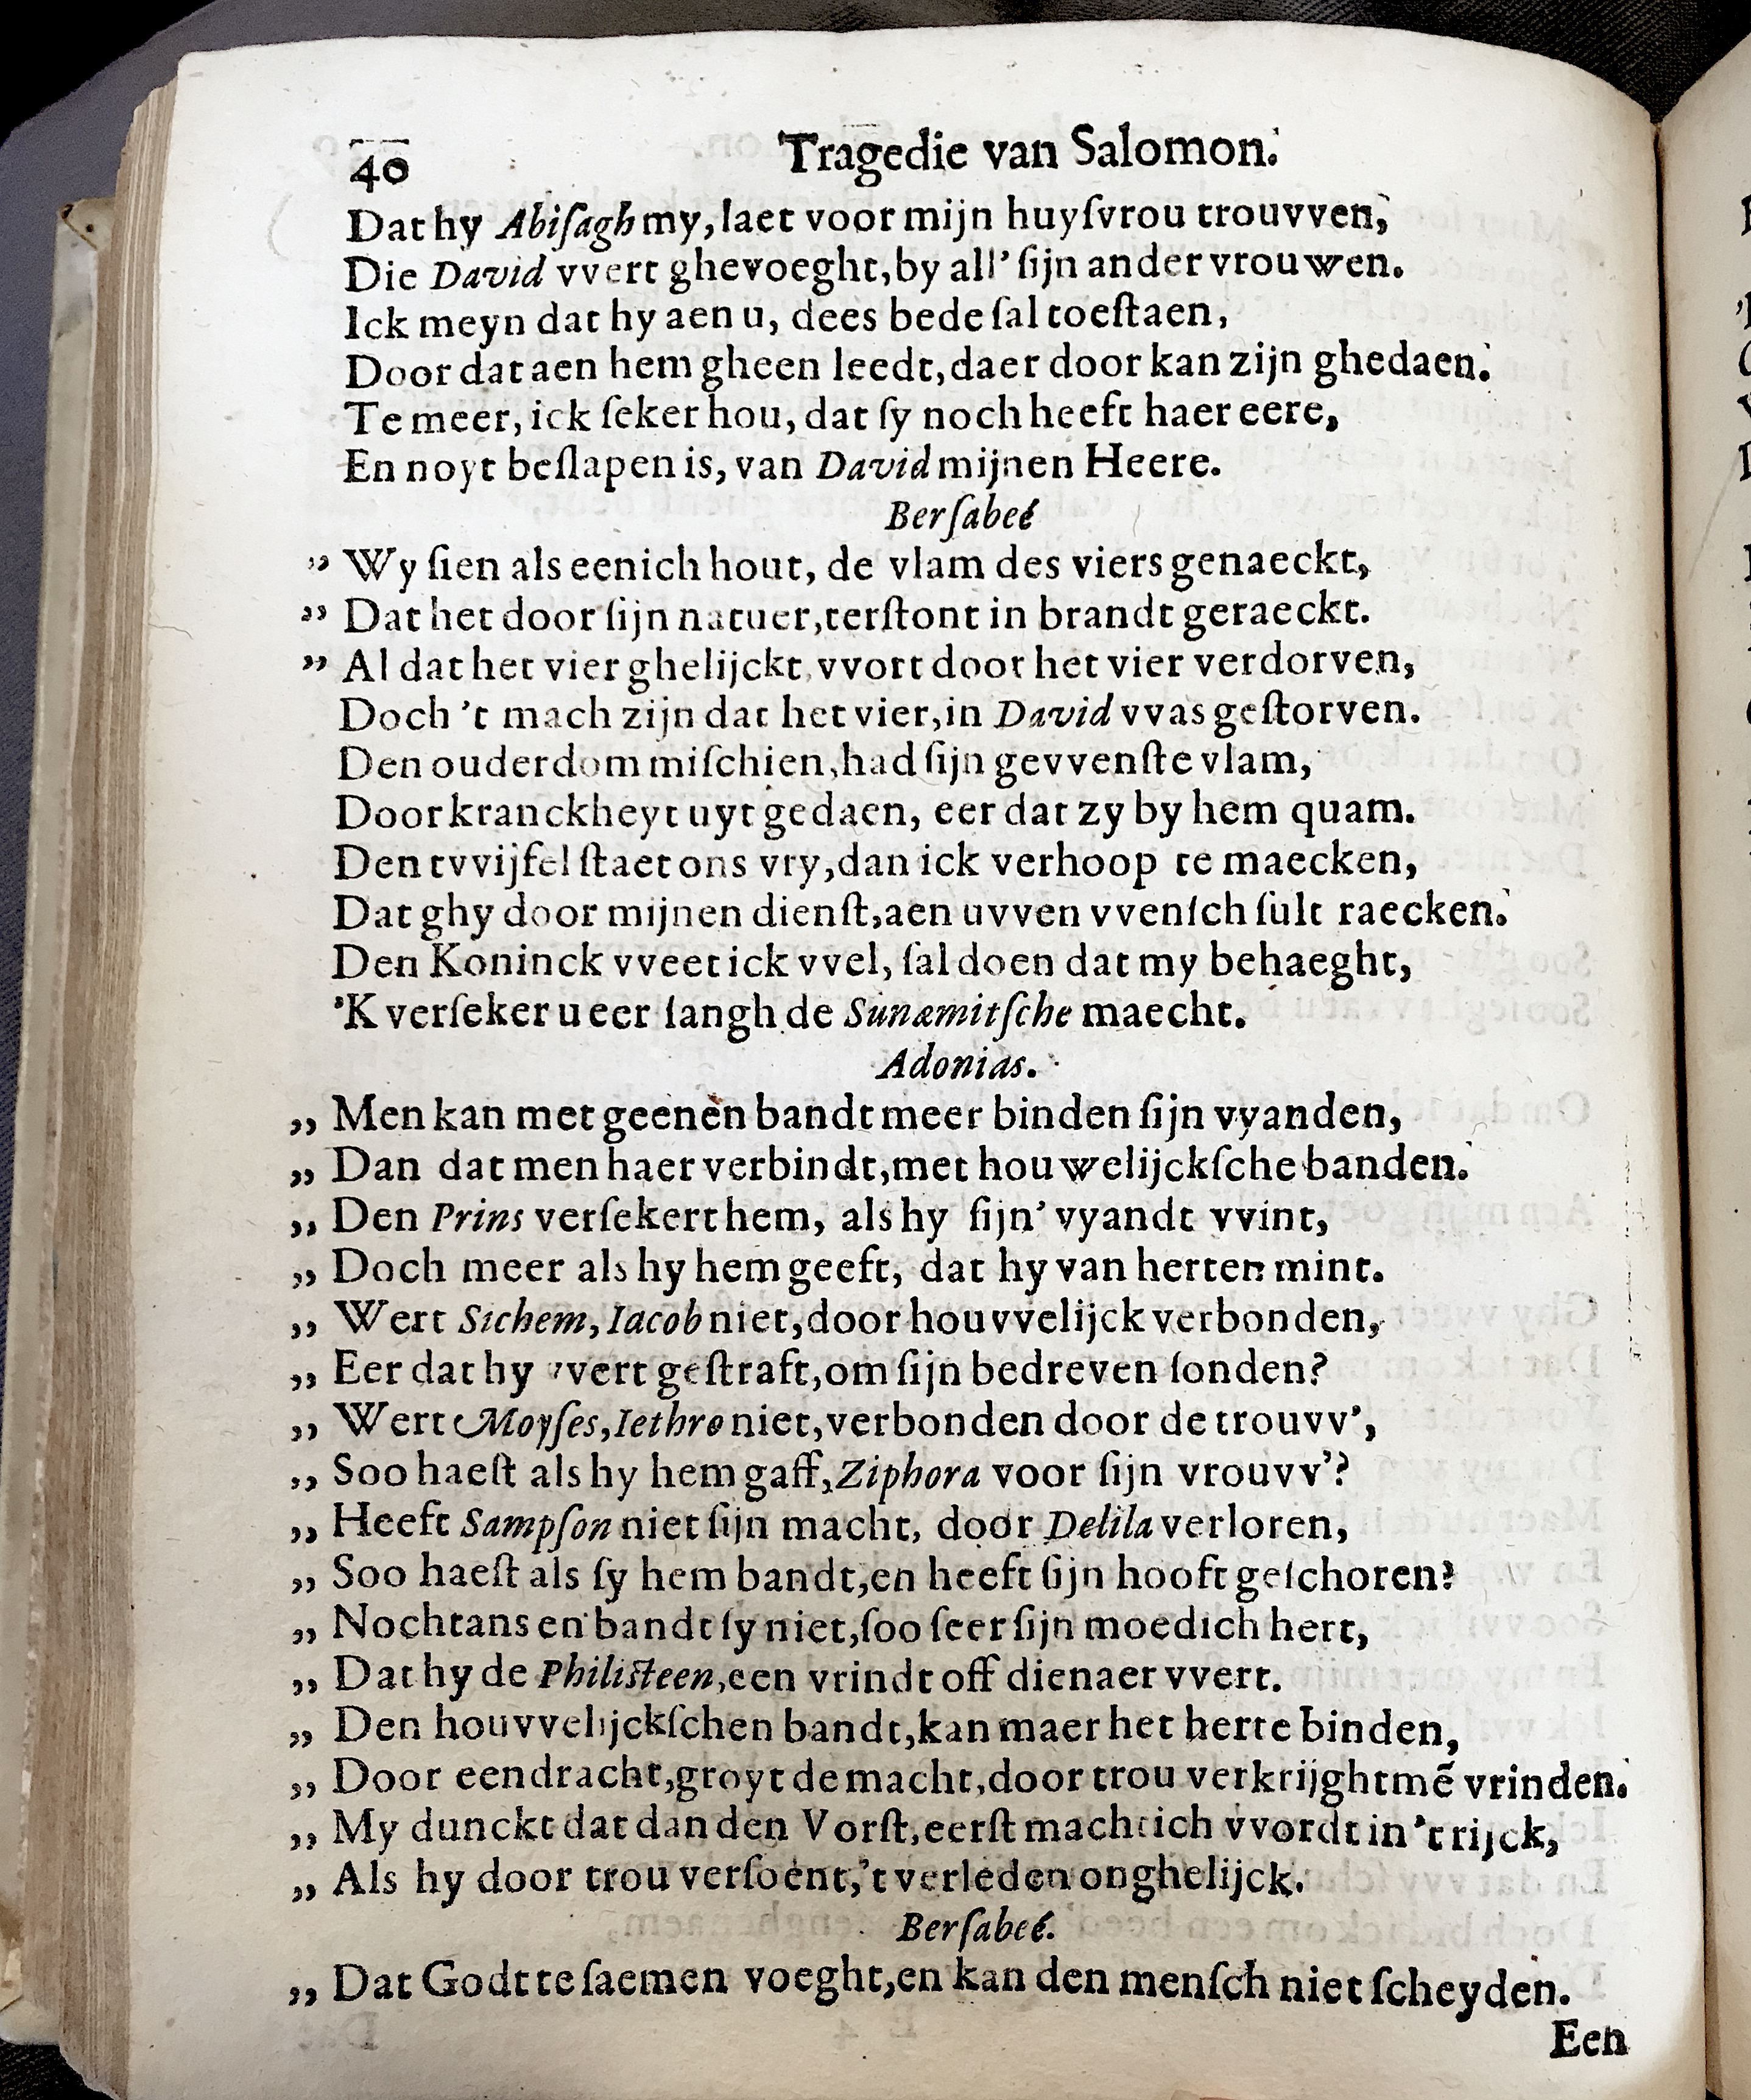 40 Tragedie van Salomon.
Dat hy Abiſagh my, laet voor mijn huyſvrou trouvven,
Die David vvert ghevoeght, by all' ſijn ander vrouwen.
Ick meyn dat hy aen u, dees bede ſal toeſtaen,
Door dat aen hem gheen leedt, daer door kan zijn ghedaen.
Te meer, ick ſeker hou, dat ſy noch heeft haer eere,
En noyt beſlapen is, van David mijnen Heere.
Berſabeé
„ Wy ſien als eenich hout, de vlam des viers genaeckt,
„ Dat het door ſijn natuer, terſtont in brandt geraeckt.
„ Al dat het vier ghelijckt, vvort door het vier verdorven,
Doch 't mach zijn dat het vier, in David vvas geſtorven.
Den ouderdom miſchien, had ſijn gevvenſte vlam,
Door kranckheyt uyt gedaen, eer dat zy by hem quam.
Den tvvijfel ſtaet ons vry, dan ick verhoop te maecken,
Dat ghy door mijnen dienſt, aen uvven vvenſch ſult raecken.
Den Koninck vveet ick vvel, ſal doen dat my behaeght,
'K verſeker u eer langh de Sunæmitſche maecht.
Adonias.
„ Men kan met geenen bandt meer binden ſijn vyanden,
„ Dan dat men haer verbindt, met houwelijckſche banden.
„ Den Prins verſekert hem, als hy ſijn' vyandt vvint,
„ Doch meer als hy hem geeft, dat hy van herten mint.
„ Wert Sichem, Iacob niet, door houvvelijck verbonden,
„ Eer dat hy vvert geſtraft, om ſijn bedreven ſonden?
„ Wert Moyſes, Iethro niet, verbonden door de trouvv',
„ Soo haeſt als hy hem gaff, Ziphora voor ſijn vrouvv'?
„ Heeft Sampſon niet ſijn macht, door Delila verloren,
„ Soo haeſt als ſy hem bandt, en heeft ſijn hooft geſchoren?
„ Nochtans en bandt ſy niet, ſoo ſeer ſijn moedich hert,
„ Dat hy de Philiſteen, een vrindt off dienaer vvert.
„ Den houvvelijckſchen bandt, kan maer het herte binden,
„ Door eendracht, groyt de macht, door trou verkrijght mẽ vrinden.
„ My dunckt dat dan den Vorſt, eerſt machtich vvordt in 't rijck,
„ Als hy door trou verſoent, 't verleden onghelijck.
Berſabeé.
„ Dat Godt te ſaemen voeght, en kan den menſch niet ſcheyden.
Een